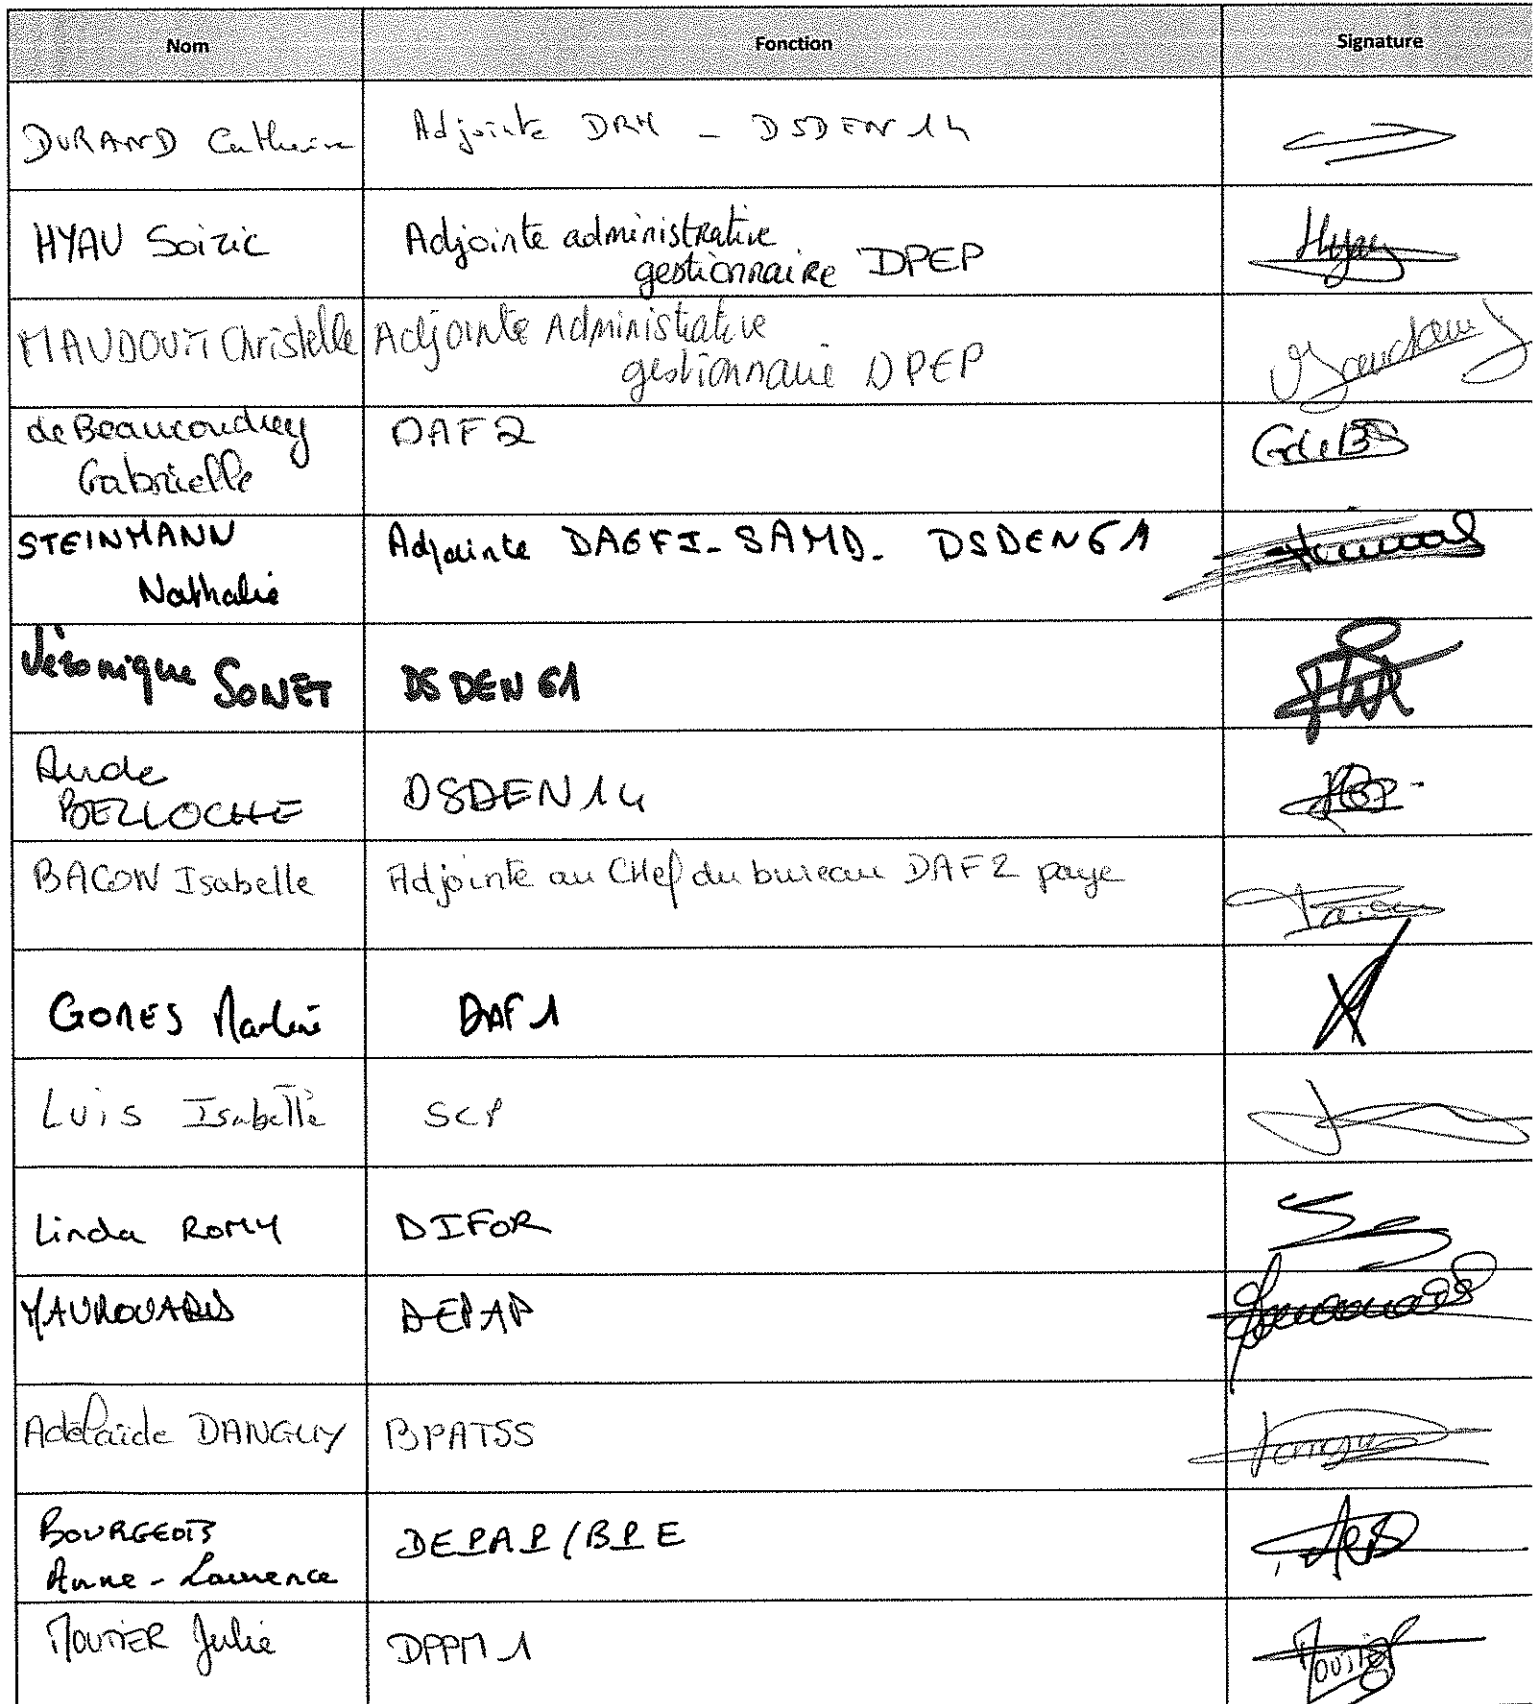 Nom Fonction Signature
DURAND Catherine Adjointe DRH - DSDEN 14
HYAU Soizic Adjointe administrative
gestionnaire DPEP Hyau
MAUDOUIT Christelle Adjointe Administrative
gestionnaire DPEP
de Beaucoudrey DAF 2 GdeB
Gabrielle
STEINMANN Adjointe DAGFI - SAMD - DSDEN 61
Nathalie
Véronique SONET DSDEN 61
Aude DSDEN 14
BELLOCHE
BACON Isabelle Adjointe au CHef du bureau DAF 2 paye
GOMES Martine DAF 1
LUIS Isabelle SCP
Linda ROMY DIFOR
MAUROUARD DEPAP
Adélaïde DANGUY BPATSS
BOURGEOIS DEPAP / BPE
Anne-Laurence
MOUTIER Julie DPPM 1